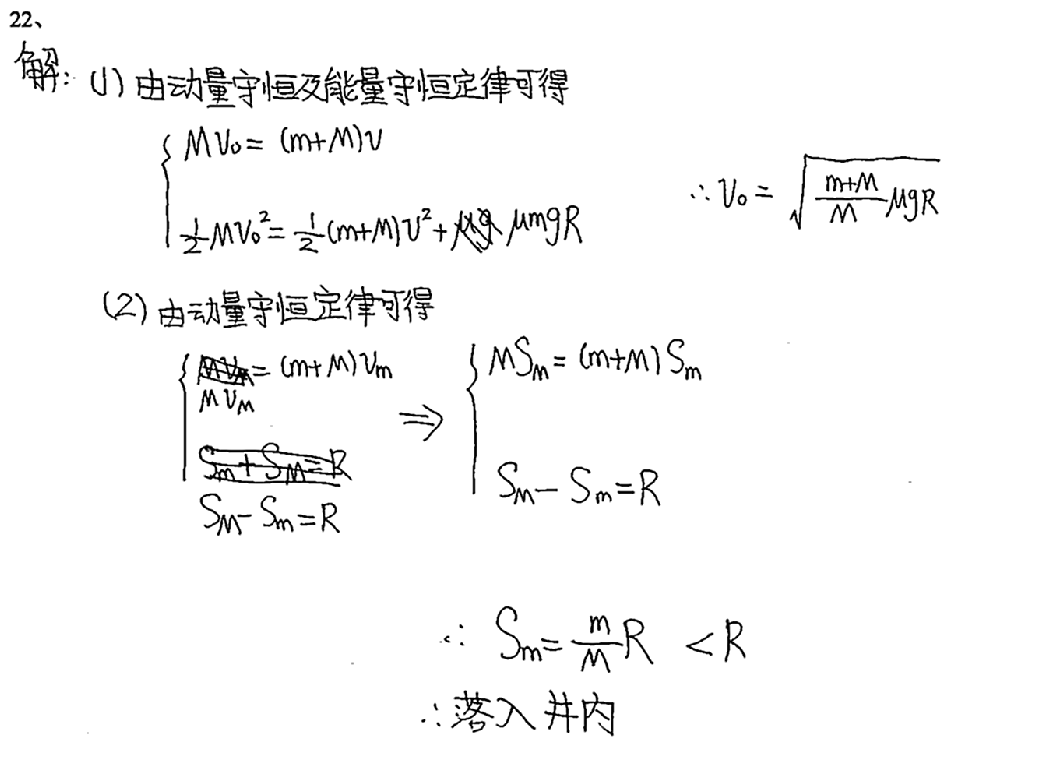 22、
解: (1) 由动量守恒及能量守恒定律可得
MV₀ = (m+M)V
½MV₀² = ½(m+M)V² + μmgR
∴ V₀ = √((m+M)/M μgR)
(2) 由动量守恒定律可得
MV_M = (m+M)V_m
S_M − S_m = R
⇒
MS_M = (m+M)S_m
S_M − S_m = R
∴ S_m = m/M R < R
∴ 落入井内